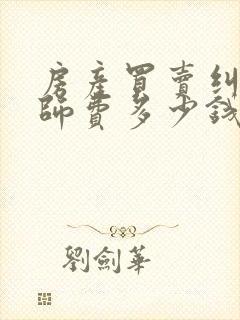 房產買賣糾
師費多少錢
劉劍華